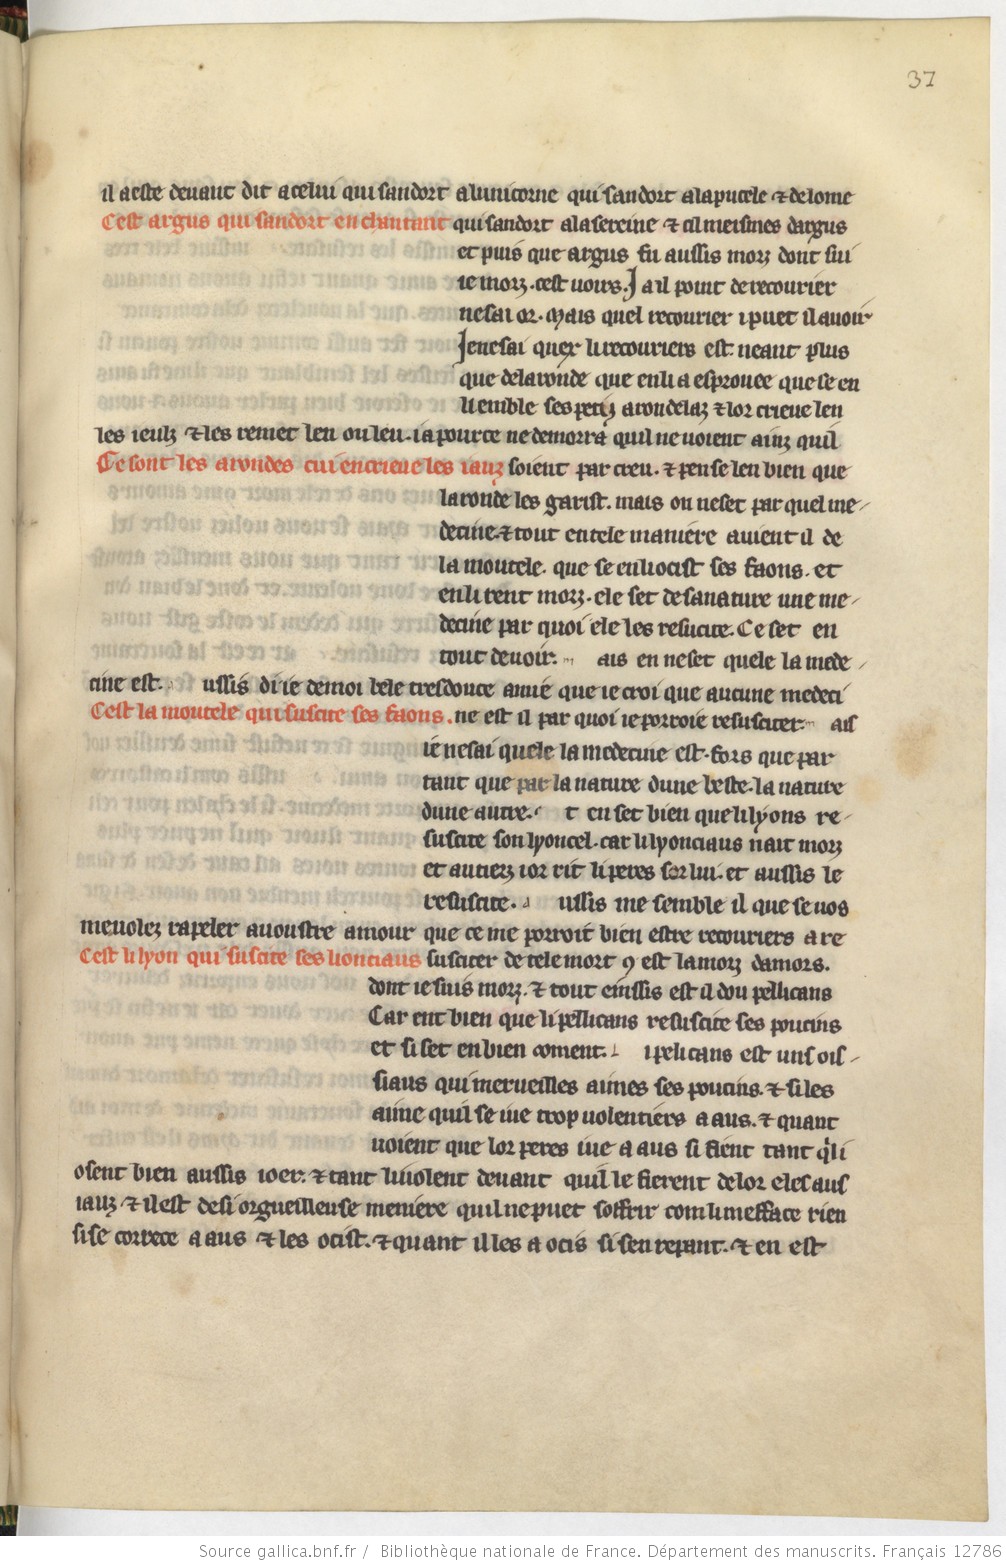 37
il aeste deuant dit acelui qui sandort alunicorne qui sandort alapucele ⁊ delome
Cest argus qui sandort en chantant qui sandort alasereine ⁊ al meismes dargus
et puis que argus fu aussis morz dont sui
ie morz . cest uoirs . J a il point de recourier
ne sai or . Mais quel recourier i puet il auoir
Je ne sai quex li recouriers est neant plus
que delaronde que en li a esprouee que se en
li emble ses petiz arondelaz ⁊ lor crieue len
les ieulz ⁊ les remet len ou leu . ia pource ne demorra quil ne uoient ainz quil
Ce sont les arondes cui en crieue les iauz soient par creu . ⁊ pense len bien que
laronde les garist . mais on ne set par quel me-
decine . ⁊ tout en tele maniere auient il de
la moutele . que se en li ocist ses faons . et
en li rent morz . ele set de sa nature une me-
decine par quoi ele les resucite . Ce set en
tout de uoir . m ais en ne set quele la mede-
cine est . ussis di ie de moi bele tresdouce amie que ie croi que aucune medeci
Cest la moutele qui suscite ses faons . ne est il par quoi ie porroie resusciter m ais
ie ne sai quele la medecine est . fors que par
tant que par la nature dune beste . la nature
dune autre . t en set bien que li lyons re-
suscite son lyoncel . car li lyonciaus nait morz
et au tierz ior rit li peres sor lui . et aussis le
resuscite . a ussis me semble il que se uos
me uolez rapeler a uoustre amour que ce me porroit bien estre recouriers a re
Cest li lyon qui suscite ses lionciaus susciter de tele mort ꝯ est la morz damors .
dont ie suis morz . ⁊ tout einssis est il dou pellicans
Car ent bien que li pellicans resuscite ses poucins
et si set en bien coment . l i pelicans est uns ois-
siaus qui merueilles aimes ses poucins . ⁊ si les
aime quil se iue trop uolentiers a aus . ⁊ quant
uoient que lor peres iue a aus si fient tant qͥ li
osent bien aussis ioer . ⁊ tant li uiolent deuant quil le fierent de lor eles aus
iauz ⁊ il est de si orgueilleuse meniere quil ne puet soffrir com li mefface rien
si se correce a aus ⁊ les ocist . ⁊ quant il les a ocis si sen repant . ⁊ en est
Source gallica.bnf.fr / Bibliothèque nationale de France. Département des manuscrits. Français 12786